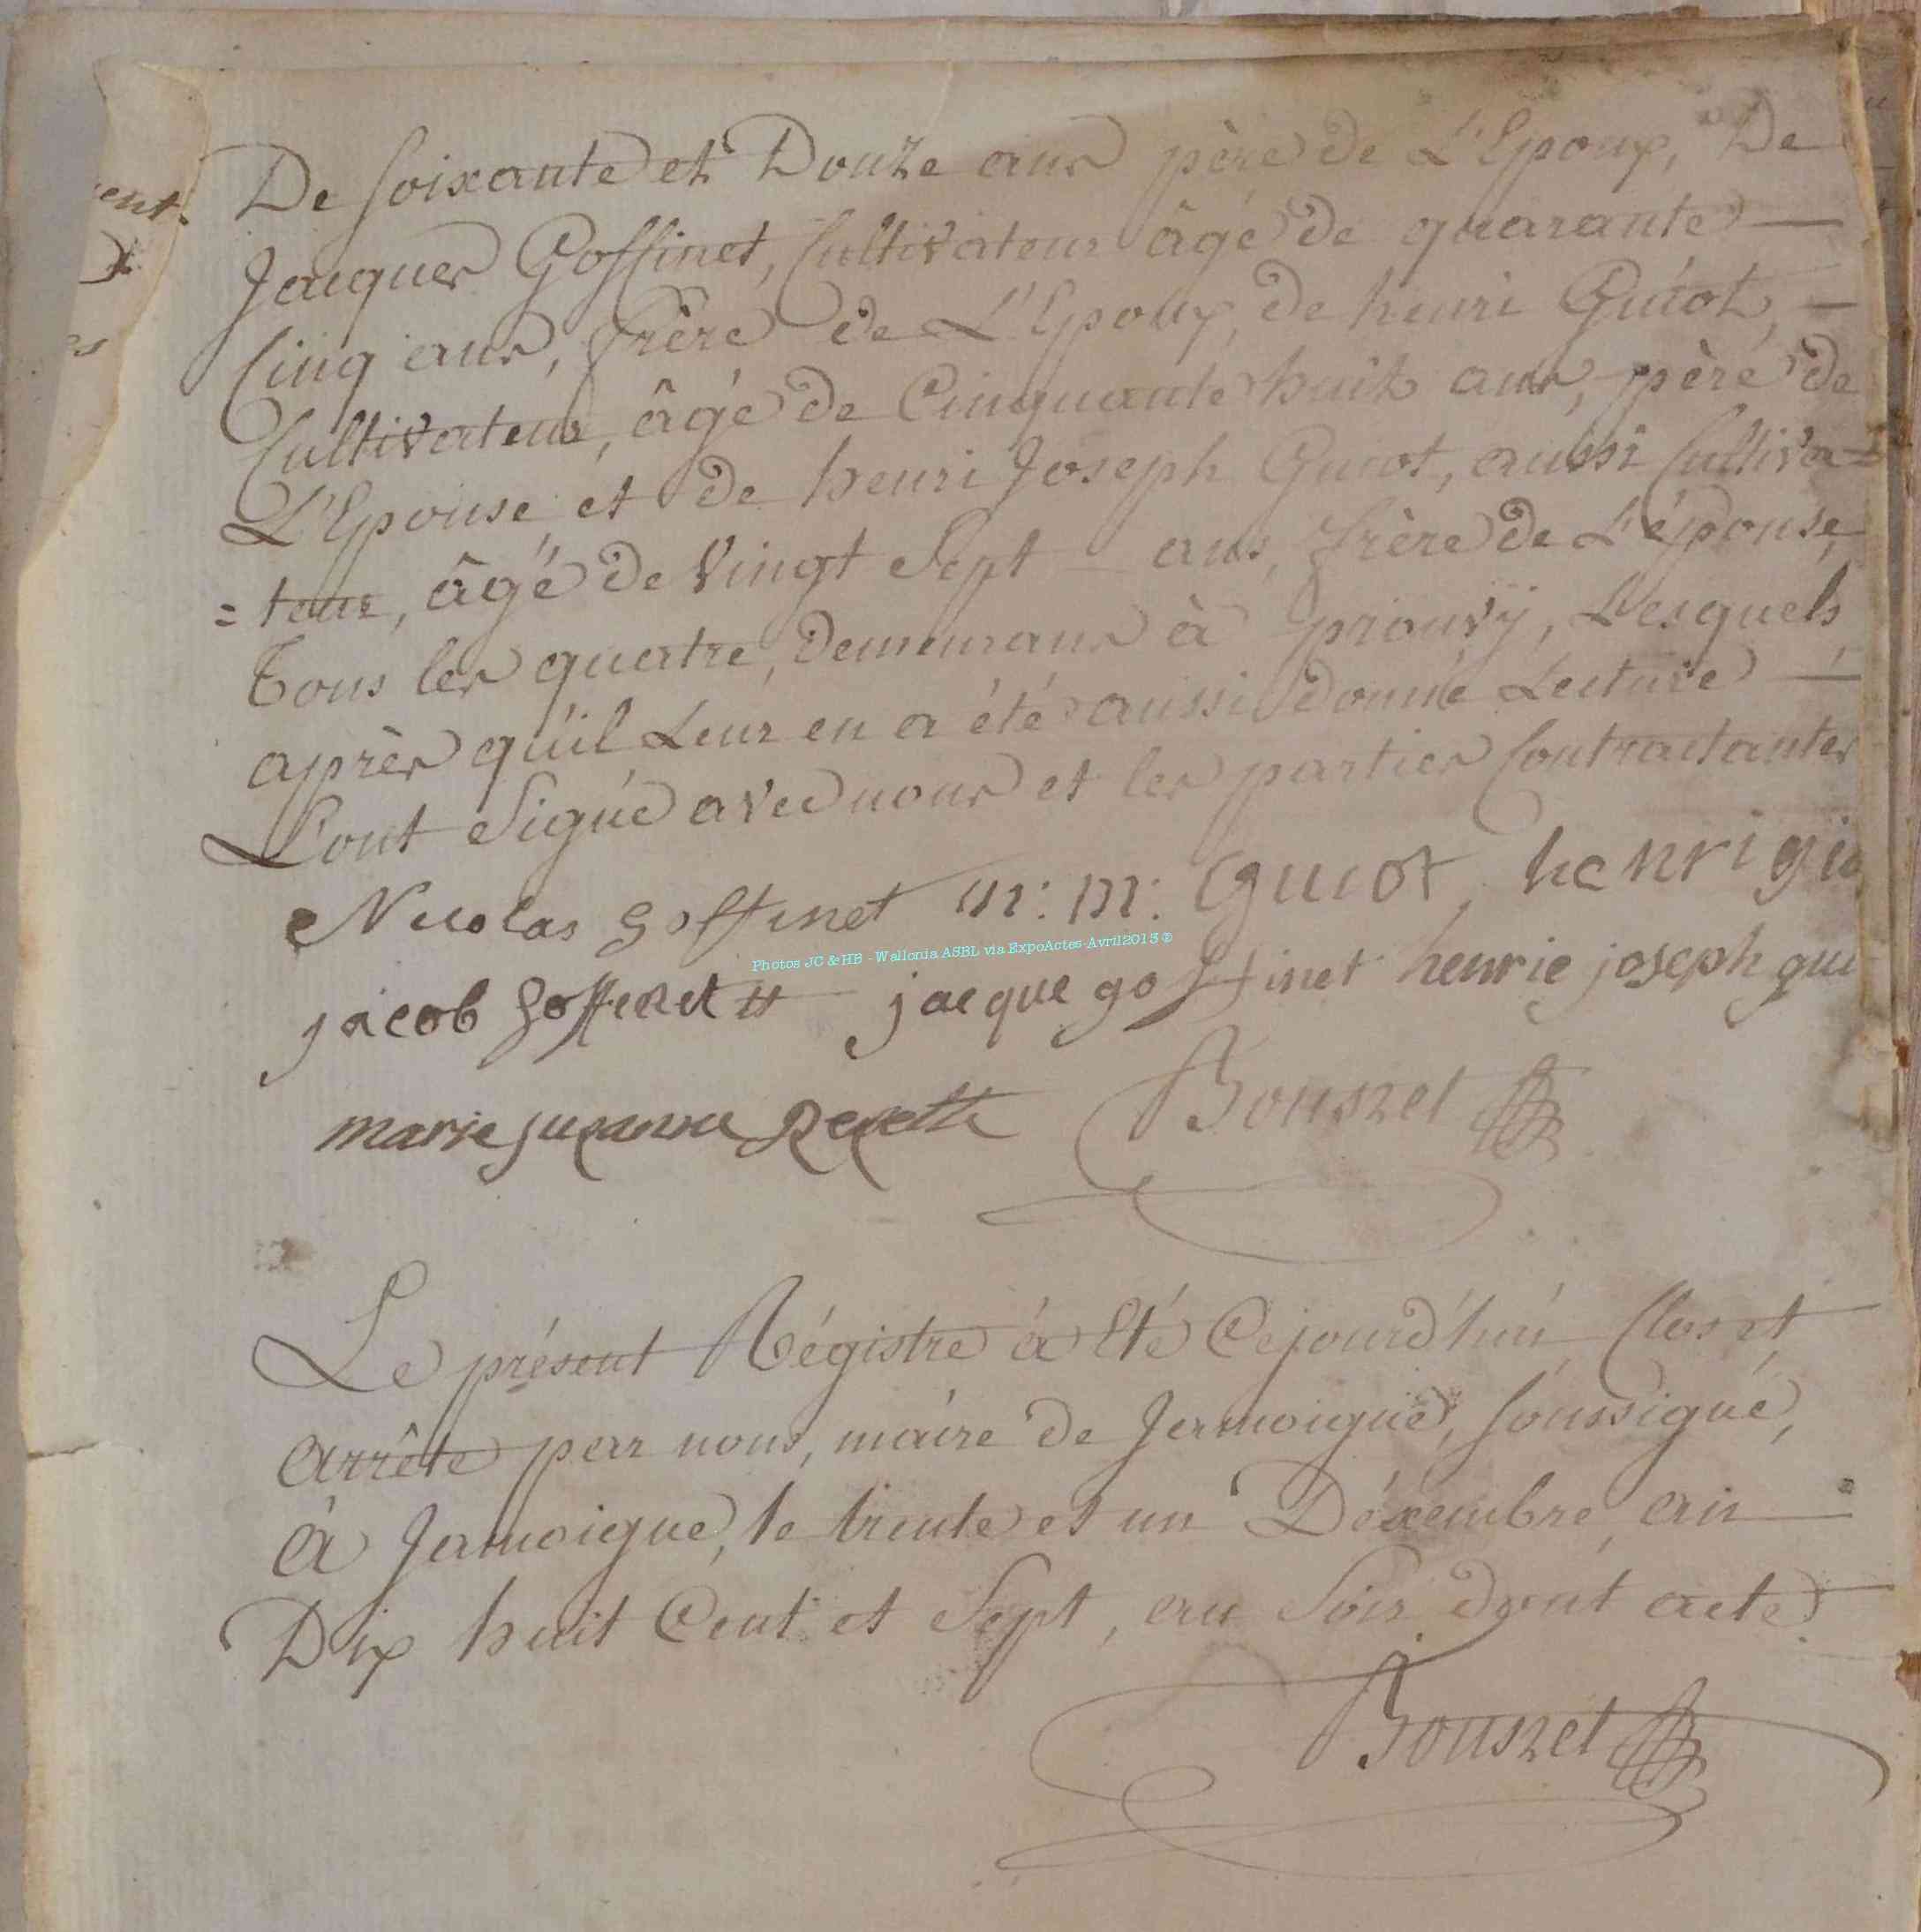 ent.
es
De soixante et Douze ans père de L'Epoux, De
Jacques Goffinet, Cultivateur âgé de quarante —
Cinq ans, frère de L'Epoux, de henri Guiot, —
Cultivateur, âgé de Cinquante huit ans, père de
L'Epouse et de henri Joseph Guiot, aussi Cultiva=
=teur, âgé de Vingt Sept — ans, frère de L'épouse,
Tous les quatre, demeurans à prouvÿ, Lesquels,
après qu'il Leur en a été aussi donné Lecture —
L'ont Signé avec nous et les parties Contractantes
Nicolas goffinet m: m: Guiot, henri gio
Photos JC & HB - Wallonia ASBL via ExpoActes-Avril2013 ©
jacob goffenet jacque goffinet henrie joseph gui
marie susanne
Bousret
Le présent Régistre à Eté Cejourd'hui, Clos et
Arrêté par nous, maire de Jamoigne, soussigné,
à Jamoigne, le trente et un Décembre, an —
Dix huit Cent et Sept, au Soir dont acte
Bousret